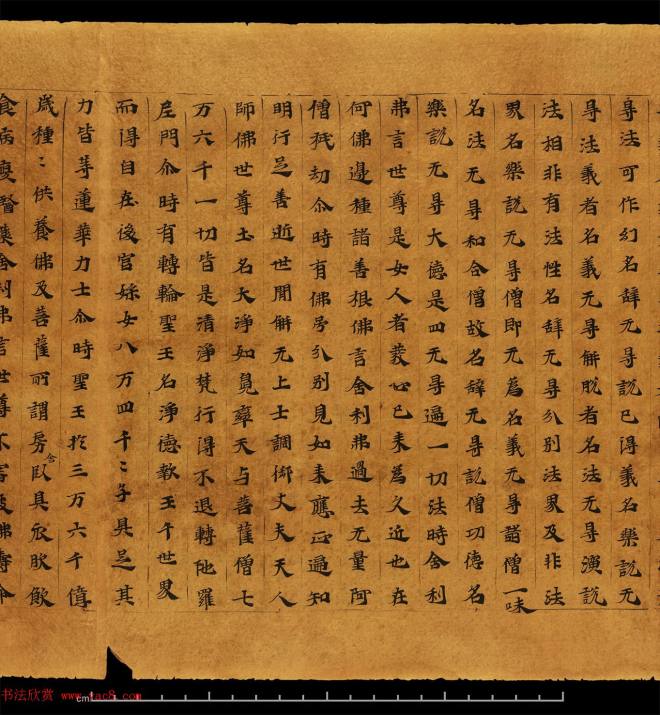 㝵法可作幻名辞无㝵說已得義名樂說无
㝵法義者名義无㝵解脫者名法无㝵演說
法相非有法性名辞无㝵分別法界及非法
界名樂說无㝵僧即无為名義无㝵諸僧一味
名法无㝵和合僧故名辞无㝵說僧功德名
樂說无㝵大德是四无㝵遍一切法時舍利
弗言世尊是女人者發心已来為久近也在
何佛邊種諸善根佛言舍利弗過去无量阿
僧祇劫尒時有佛号分別見如来應正遍知
明行足善逝世間解无上士調御丈夫天人
師佛世尊土名大淨如兜率天与菩薩僧七
万六千一切皆是清淨梵行得不退轉陁羅
尼門尒時有轉輪聖王名淨德敷王千世界
而得自在後宮婇女八万四千〻子具足其
力皆等蓮華力士尒時聖王於三万六千億
歲種〻供養佛及菩薩所謂房舍臥具衣服飲
食病瘦醫藥舍利弗言世尊不審彼佛壽命
书法欣赏 www.yac8.com
cm